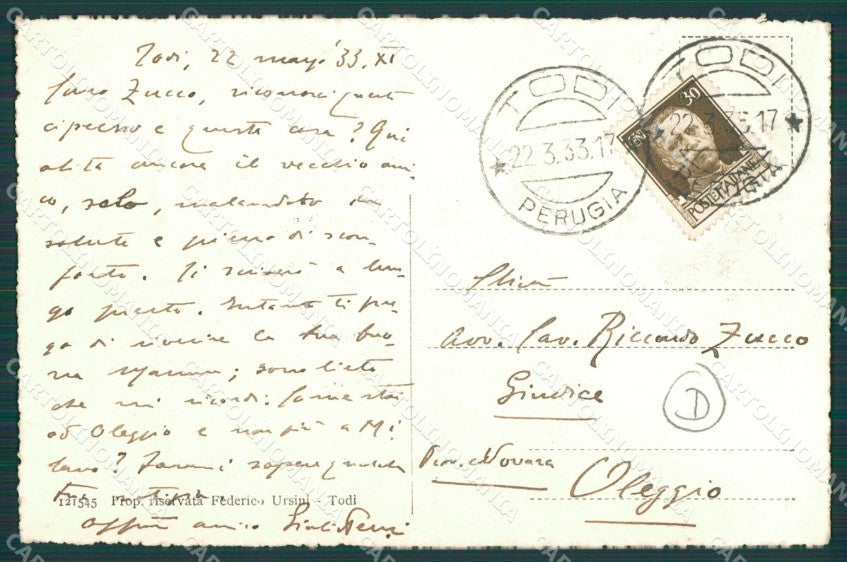 Todi, 22 marzo '33. XI
Caro Zucco, riconosci questi
cipressi e questa casa? Qui
abita ancora il vecchio ami
co, solo, malandato in
salute e pieno di scon-
forto. Ti scriverò a lun-
go presto. Intanto ti pre-
go di riverire la tua buo-
na mamma; sono lieto
che mi ricordi. Come stai
ad Oleggio e non più a Mi
lano? Fammi sapere qualche
121545 Prop. riservata Federico Ursini - Todi
aff.mo amico
TODI
22.3.33.17
PERUGIA
TODI
22.3.33.17
30
POSTE ITALIANE
Avv. Cav. Riccardo Zucco
Giudice
D
Prov. Novara
Oleggio
CARTOLINOMANIA